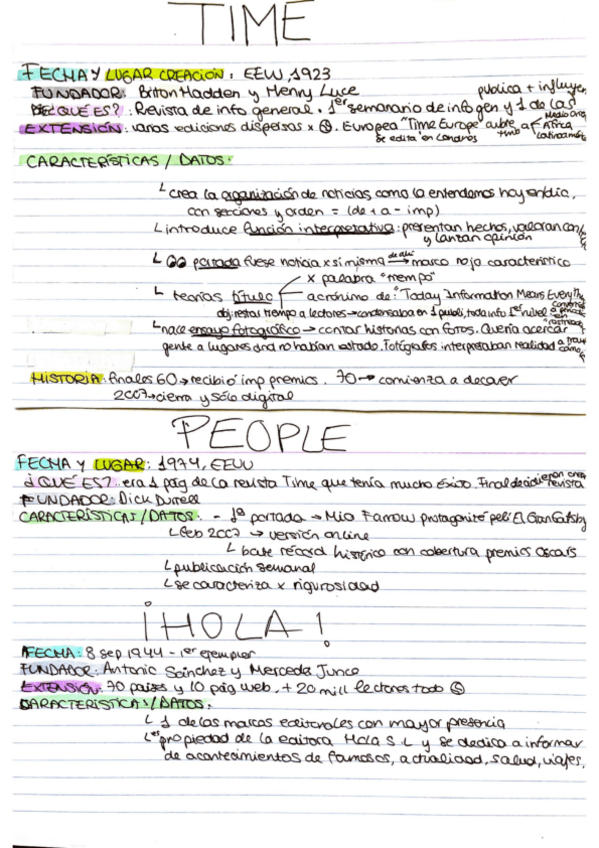 TIME
FECHA Y LUGAR CREACIÓN: EEUU, 1923
FUNDADOR: Briton Hadden y Henry Luce
publica + influyen
¿QUÉ ES?: Revista de info general. 1er semanario de info gen y 1 de las
EXTENSIÓN: varias ediciones dispersas x. Europea "Time Europe" cubre a Medio Ori, África, Latinoamér
se edita en Londres
CARACTERÍSTICAS / DATOS:
crea la organización de noticias, como la entendemos hoy en día,
con secciones y orden = (de + a - imp)
introduce función interpretativa: presentan hechos, valoran con
y lanzan opinión
portada fuese noticia x sí misma de ahí → marco rojo característico
x palabra "tiempo"
teorías título
acrónimo de: "Today Information Means Everythi
obj: restar tiempo a lectores → condensaba en 1 publi, toda info 1er nivel
nace ensayo fotográfico → contar historias con fotos. Quería acercar
gente a lugares dnd no habían estado. Fotógrafos interpretaban realidad a trav
cáma
HISTORIA: finales 60 → recibió imp premios. 70 → comienza a decaer
2007 → cierra y sólo digital
PEOPLE
FECHA Y LUGAR: 1974, EEUU
¿QUÉ ES?: era 1 pág de la revista Time que tenía mucho éxito. Final decidieron crea
revista
FUNDADOR: Dick Durrell
CARACTERÍSTICAS/DATOS: - 1ª portada → Mia Farrow protagonitó peli El Gran Gatsby
feb 2007 → versión online
bate récord histórico con cobertura premios Oscars
publicación semanal
se caracteriza x rigurosidad
¡HOLA!
FECHA: 8 sep 1944 - 1er ejemplar
FUNDADOR: Antonio Sánchez y Mercedes Junco
EXTENSIÓN: 70 países y 10 pág web. + 20 mill lectores todo
CARACTERÍSTICAS/DATOS:
1 de las marcas editoriales con mayor presencia
es propiedad de la editora Hola S.L y se dedica a informar
de acontecimientos de famosos, actualidad, salud, viajes,